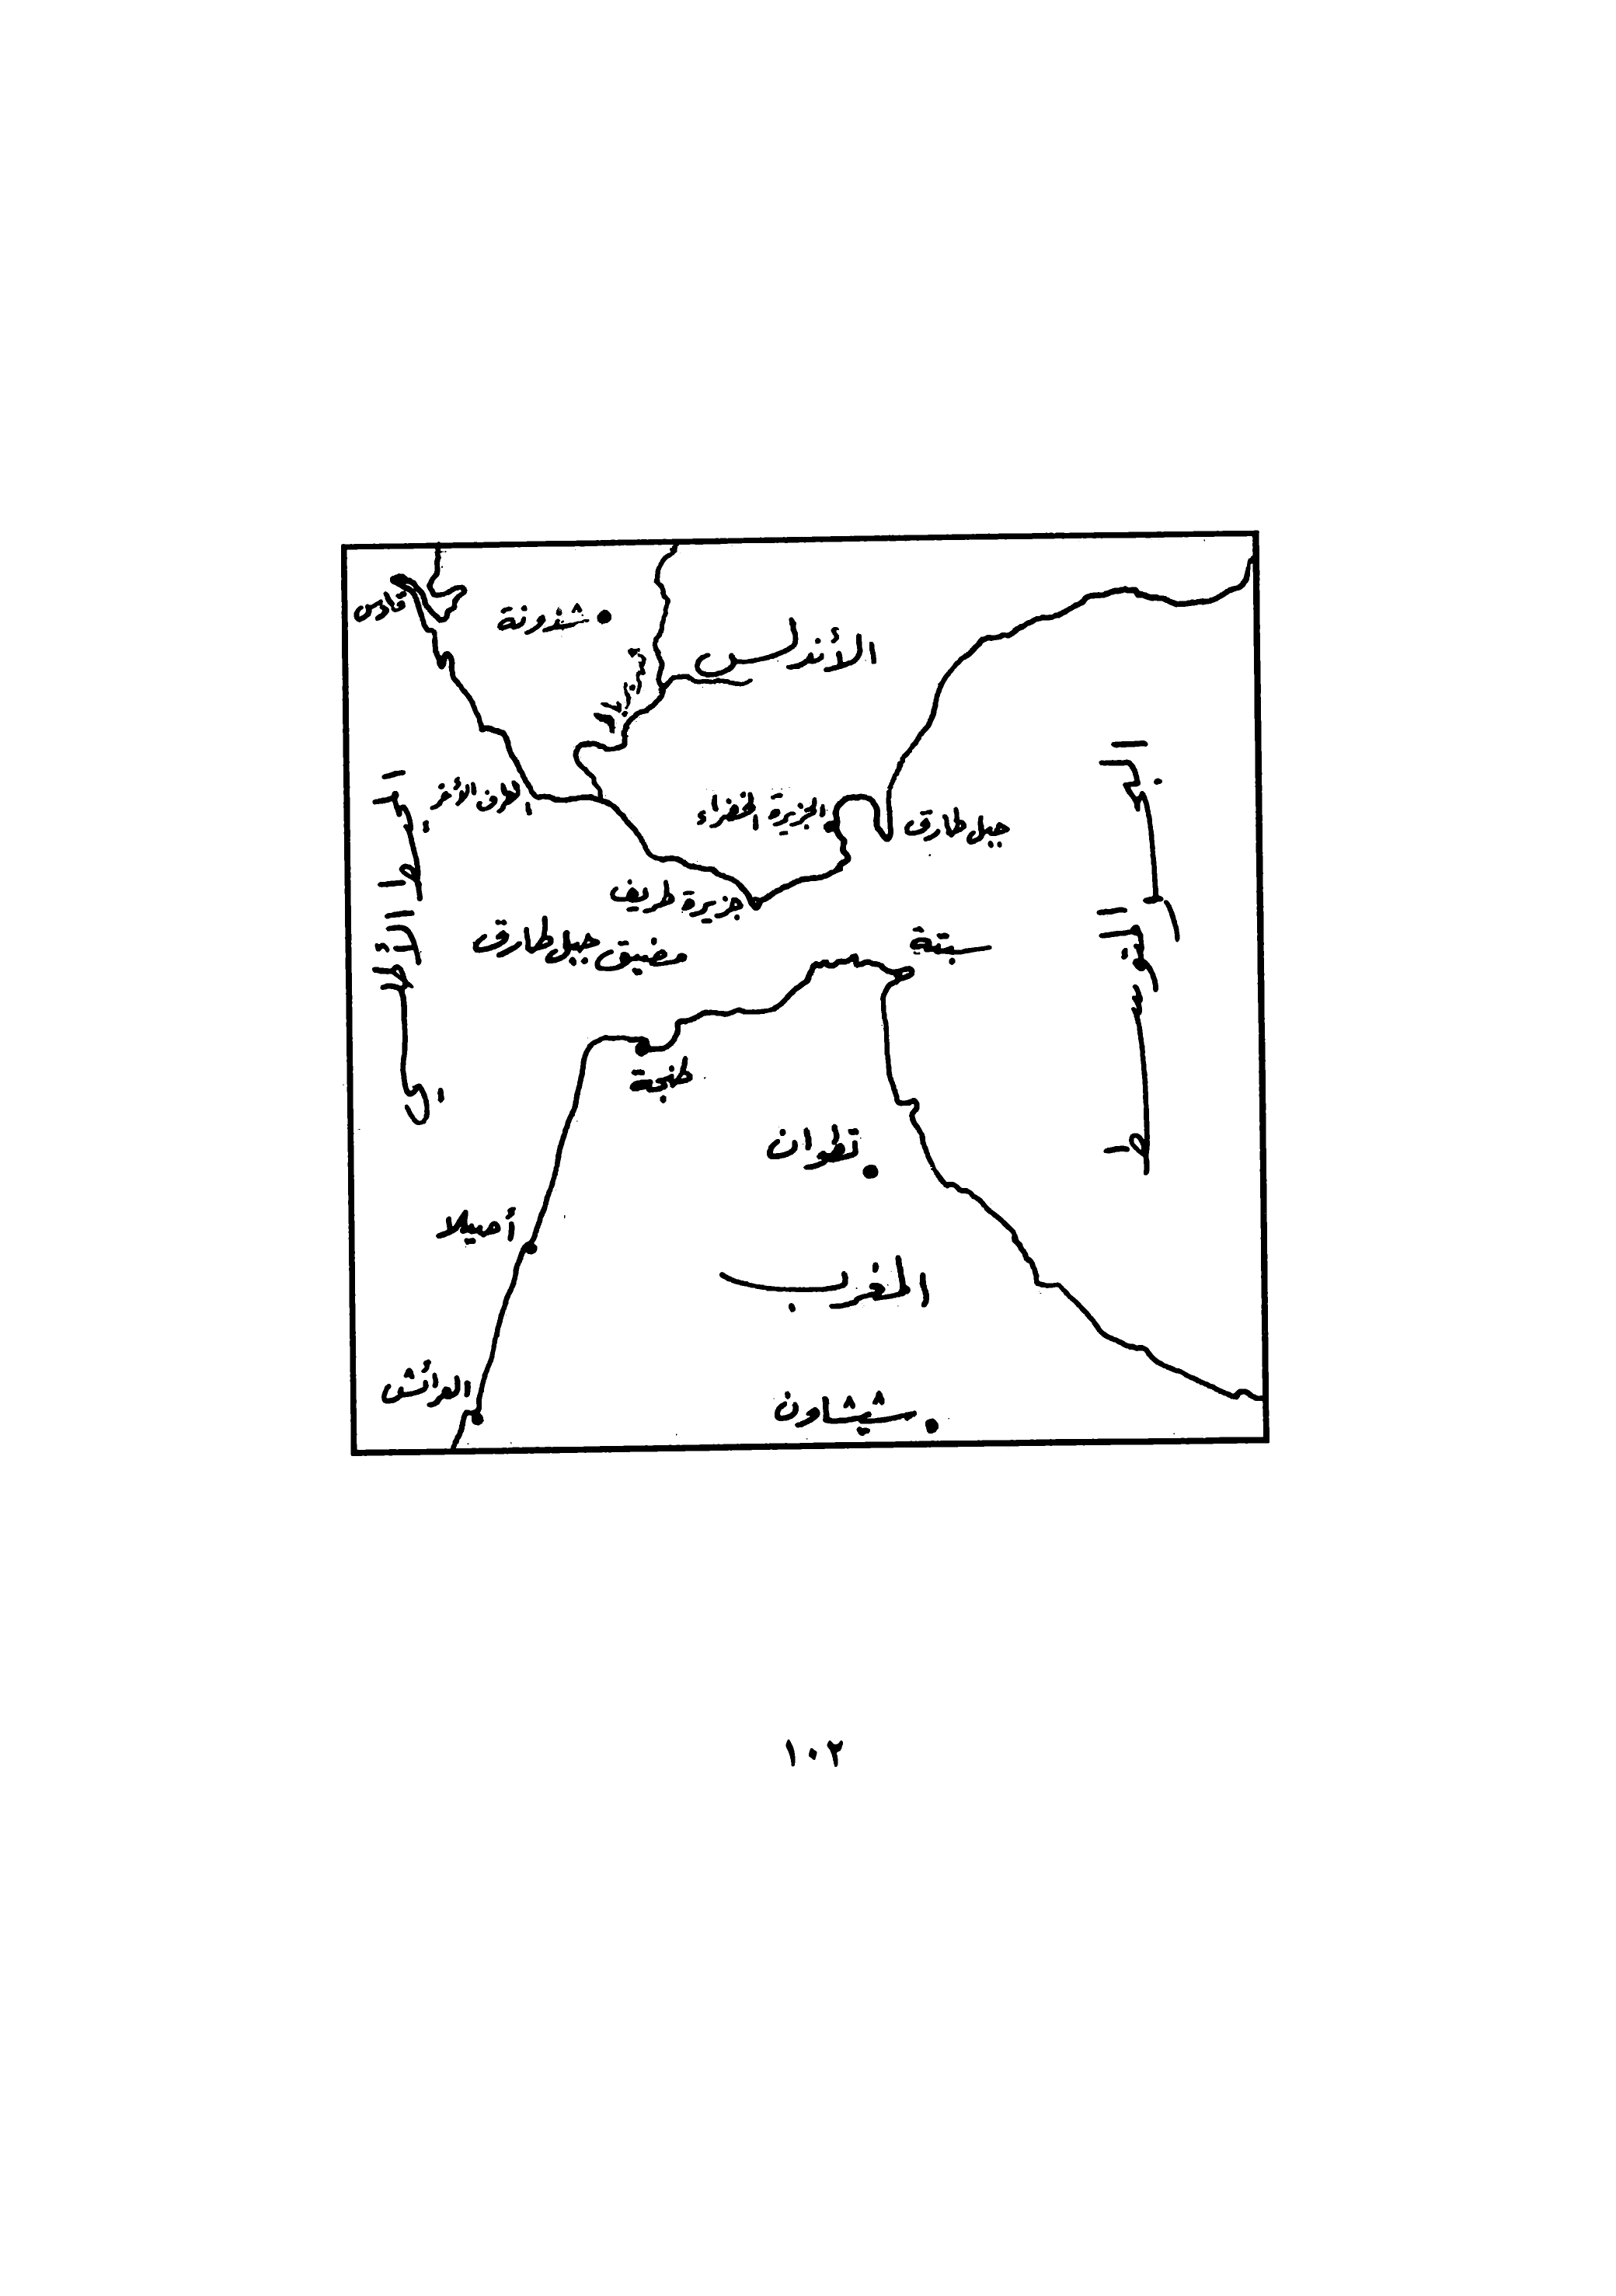 قادس
شذونة
الأندلس
الطرف الأغر
الجزيرة الخضراء
جبل طارق
جزيرة طريف
مضيق جبل طارق
سبتة
المحيط الأطلسي
البحر المتوسط
طنجة
تطوان
أصيلا
المغرب
العرائش
شيشاون
١٠٢